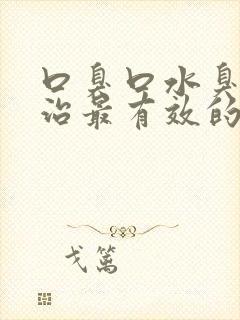 口臭口水臭
治最有效的
戈篱